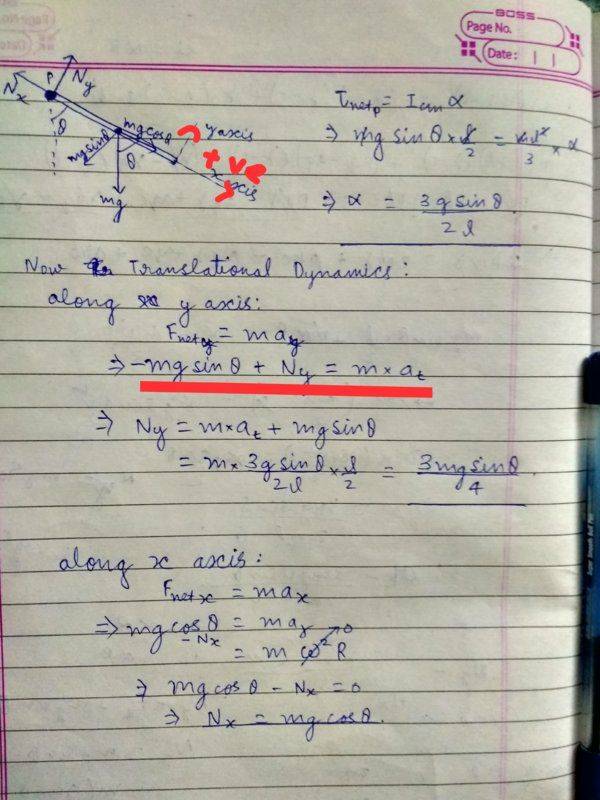 BOSS
Page No.
Date: | |
Nx P Ny
θ
mg sinθ mg cosθ y axis
θ + ve
x axis
mg
τnetp = Icm α
⇒ mg sin θ × l/2 = ml²/3 × α
⇒ α = 3g sin θ / 2l
Now Translational Dynamics:
along y axis:
Fnety = m ay
⇒ -mg sin θ + Ny = m × at
⇒ Ny = m × at + mg sin θ
= m × 3g sin θ/2l × l/2 = 3mg sin θ/4
along x axis:
Fnet x = m ax
⇒ mg cos θ - Nx = m ar
= m ω² R 0
⇒ mg cos θ - Nx = 0
⇒ Nx = mg cos θ.